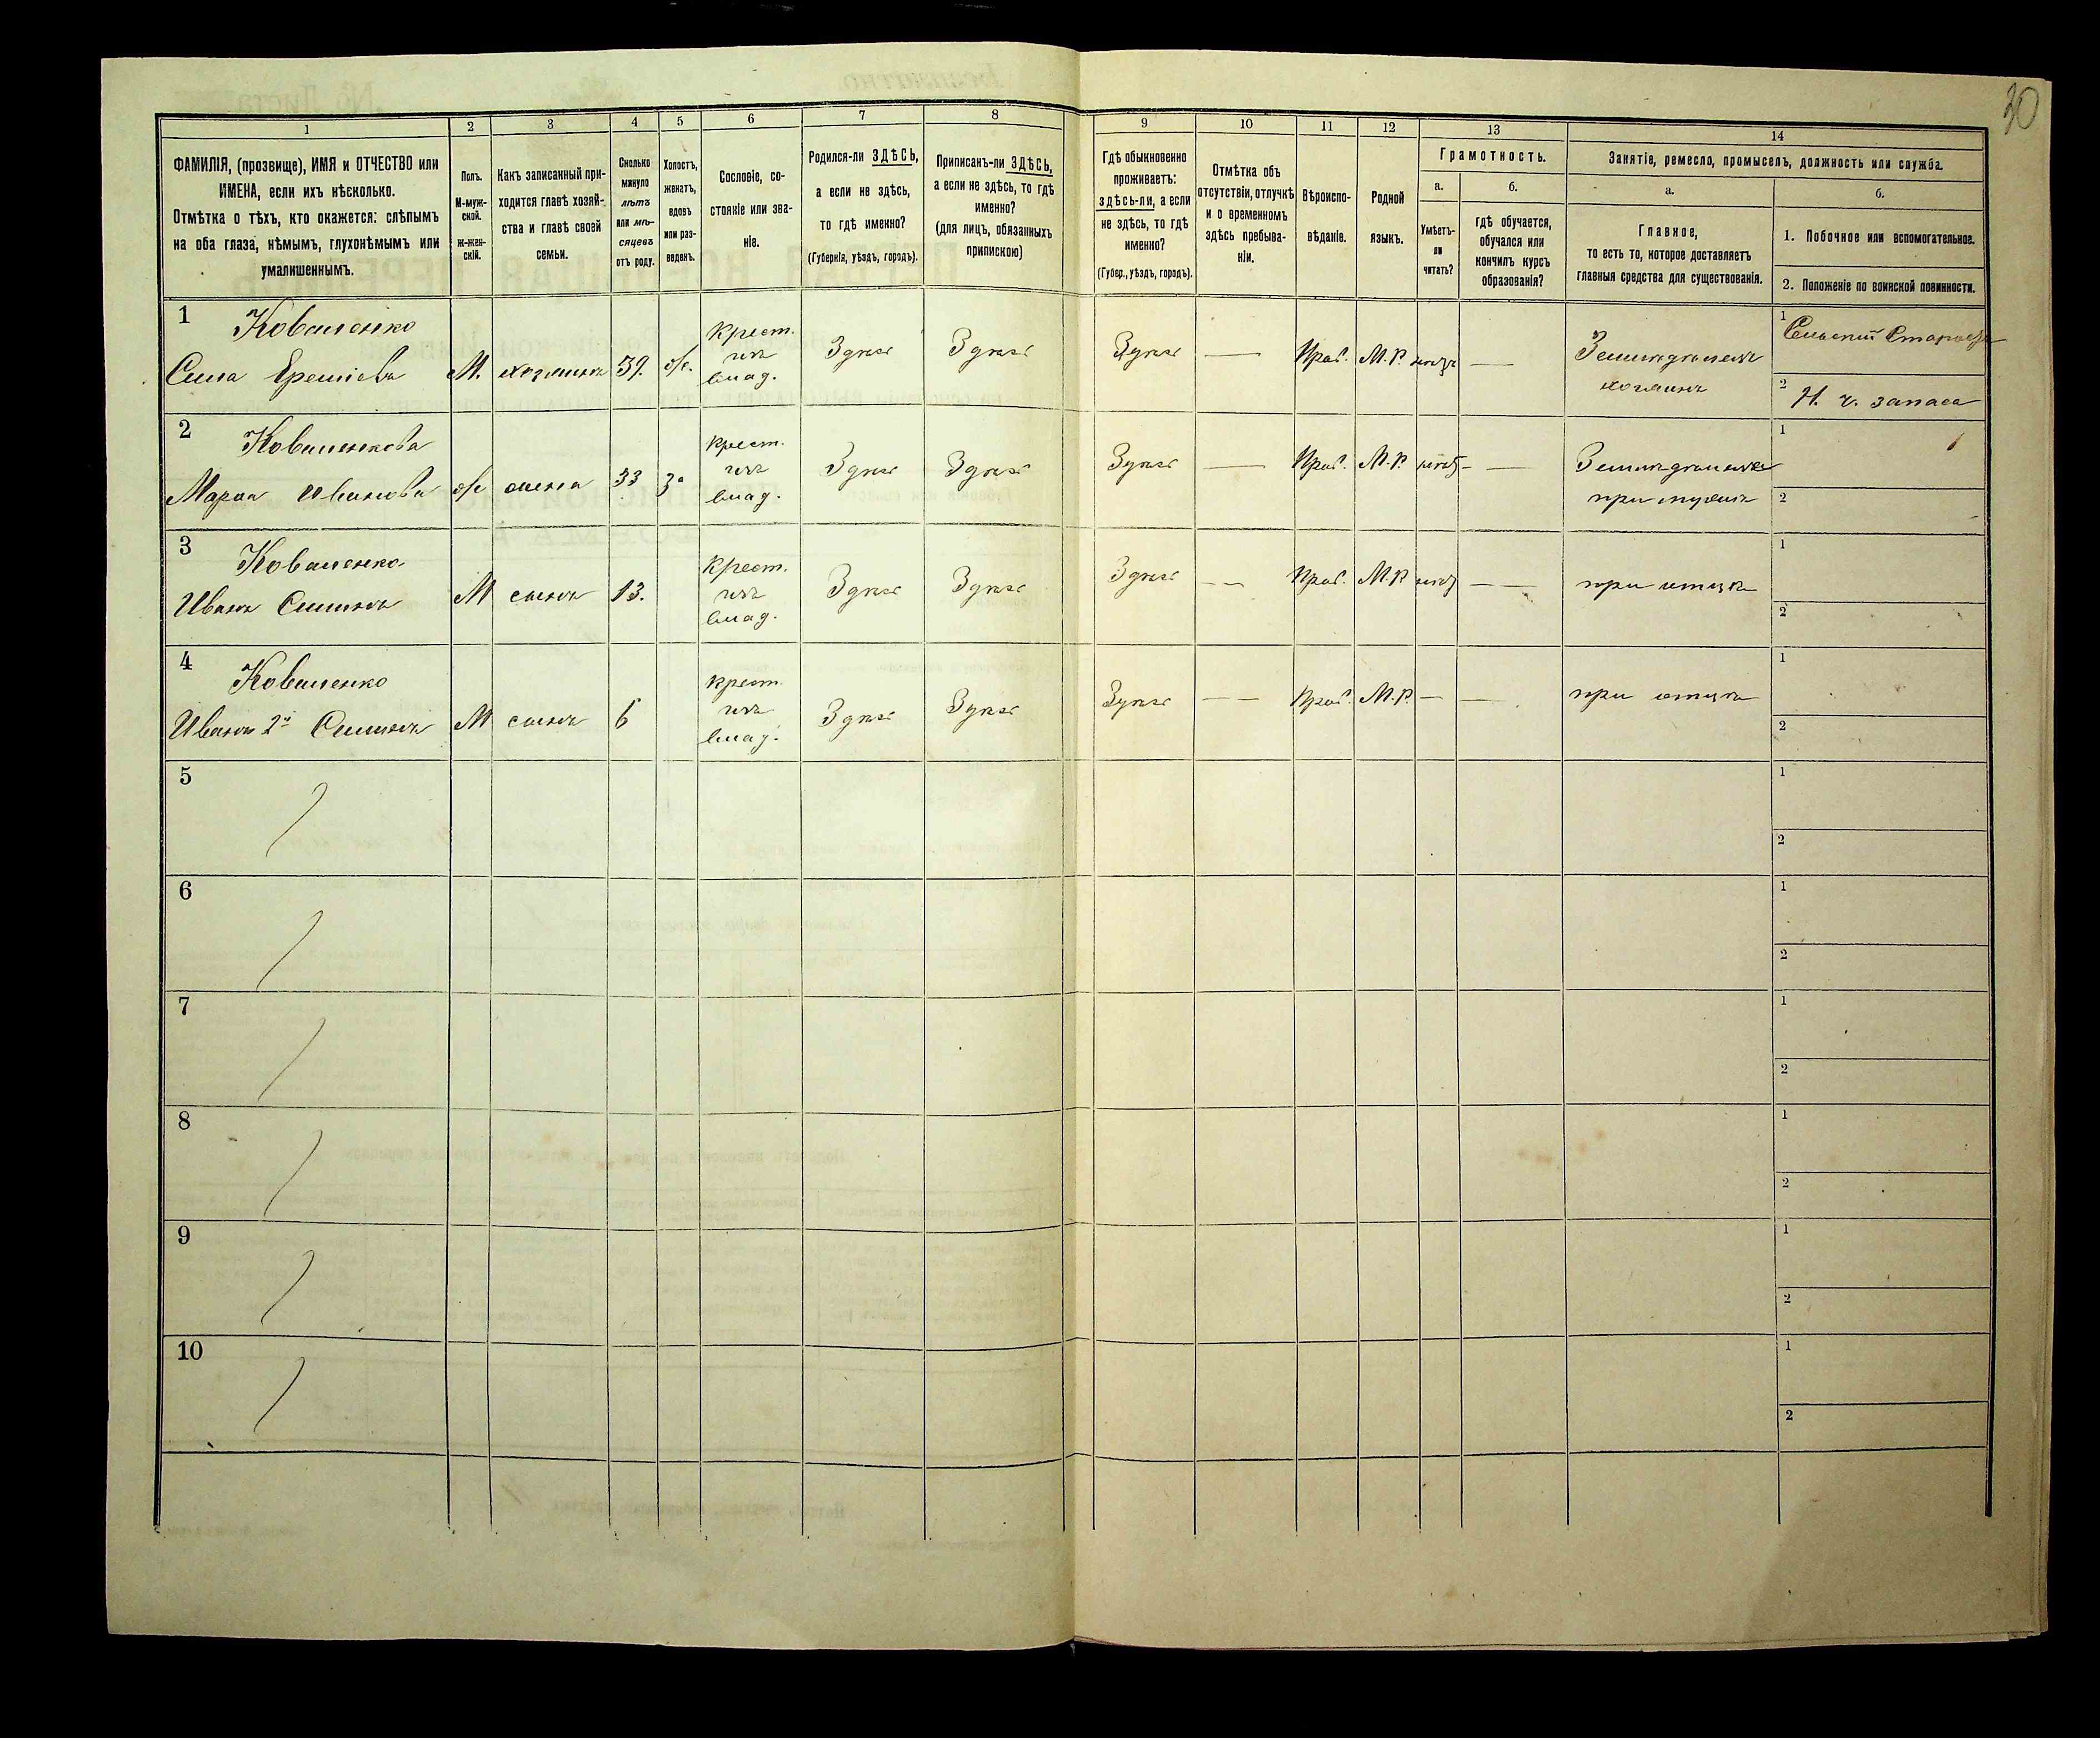 30
1
2
3
4
5
6
7
8
9
10
11
12
13
14
ФАМИЛІЯ, (прозвище), ИМЯ и ОТЧЕСТВО или
ИМЕНА, если ихъ нѣсколько.
Отмѣтка о тѣхъ, кто окажется: слѣпымъ
на оба глаза, нѣмымъ, глухонѣмымъ или
умалишеннымъ.
Полъ.
М-муж-
ской.
Ж-жен-
скій.
Какъ записанный при-
ходится главѣ хозяй-
ства и главѣ своей
семьи.
Сколько
минуло
лѣтъ
или мѣ-
сяцевъ
отъ роду.
Холостъ,
женатъ,
вдовъ
или раз-
веденъ.
Сословіе, со-
стояніе или зва-
ніе.
Родился-ли ЗДѢСЬ,
а если не здѣсь,
то гдѣ именно?
(Губернія, уѣздъ, городъ).
Приписанъ-ли ЗДѢСЬ,
а если не здѣсь, то гдѣ
именно?
(для лицъ, обязанныхъ
припискою)
Гдѣ обыкновенно
проживаетъ:
здѣсь-ли, а если
не здѣсь, то гдѣ
именно?
(Губер., уѣздъ, городъ).
Отмѣтка объ
отсутствіи, отлучкѣ
и о временномъ
здѣсь пребыва-
ніи.
Вѣроиспо-
вѣданіе.
Родной
языкъ.
Грамотность.
а.
б.
Умѣетъ-
ли
читать?
Гдѣ обучается,
обучался или
кончилъ курсъ
образованія?
Занятіе, ремесло, промыселъ, должность или служба.
а.
б.
Главное,
то есть то, которое доставляетъ
главныя средства для существованія.
1. Побочное или вспомогательное.
2. Положеніе по воинской повинности.
1 Коваленко
Сила Ереміевъ М. хозяинъ 39. ж. Крест. изъ влад. Здѣсь Здѣсь Здѣсь — Прав. М.Р. — Земледѣлецъ хозяинъ
1 Сельскій Староста
2 Н. ч. запаса
2 Коваленкова
Марѳа Иванова ж жена 33 За Крест. изъ влад. Здѣсь Здѣсь Здѣсь — Прав. М.Р. — при мужѣ
1
2
3 Коваленко
Иванъ Силинъ М сынъ 13. Крест. изъ влад. Здѣсь Здѣсь Здѣсь — — Прав. М.Р. — — при отцѣ
1
2
4 Коваленко
Иванъ 2й Силинъ М сынъ 6 Крест. изъ влад. Здѣсь Здѣсь Здѣсь — — Прав. М.Р. — — при отцѣ
1
2
5
1
2
6
1
2
7
1
2
8
1
2
9
1
2
10
1
2